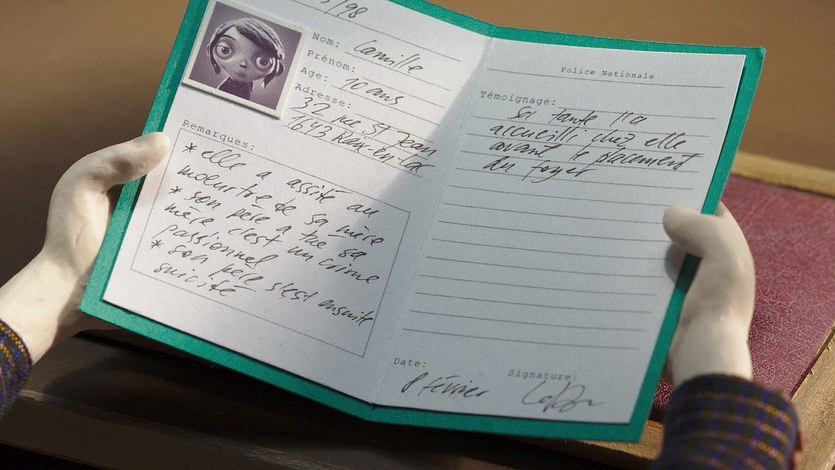 /98
Nom: Camille
Prénom:
Age: 10 ans
Adresse:
32 rue St Jean
1643 Raix-en-Lac
Remarques:
* elle a assité au
moeurtre de sa mère
* son père a tué sa
mère c'est un crime
passionnel
* son père s'est ensuite
suicité
Police Nationale
Témoignage:
Sa tante l'a
accueilli chez elle
avant le placement
au foyer
Date:
8 février
Signature: